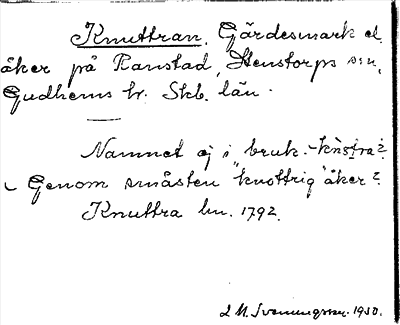 Knuttran. Gärdesmark el.
åker på Ranstad, Stenstorps s:n,
Gudhems hr. Skb. län.
Namnet ej i bruk.
Genom småsten "knottrig" åker?
Knuttra ln. 1792.
L M. Svenungsson. 1930.